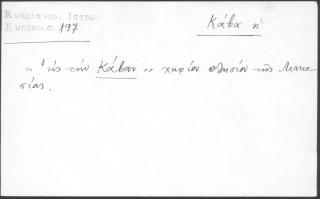 Κυπριανού Ιστορ.
Κύπρου σ. 197
Κάβα ἡ
"εἰς τὴν Κάβαν" χωρίον πλησίον τῆς Λευκω-
σίας.